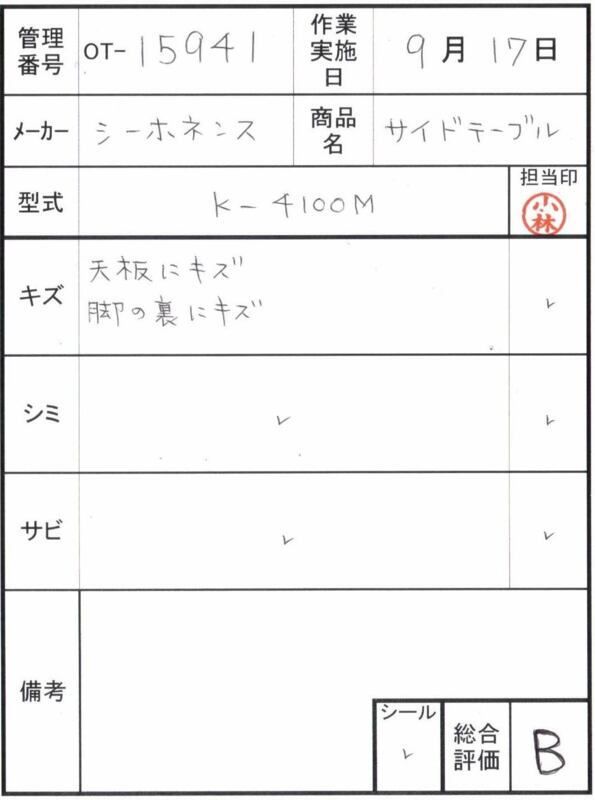 管理番号 OT-15941 作業実施日 9月17日
メーカー シーホネンス 商品名 サイドテーブル
型式 K-4100M 担当印 小林
キズ 天板にキズ ✓
脚の裏にキズ
シミ ✓ ✓
サビ ✓ ✓
備考
シール ✓ 総合評価 B